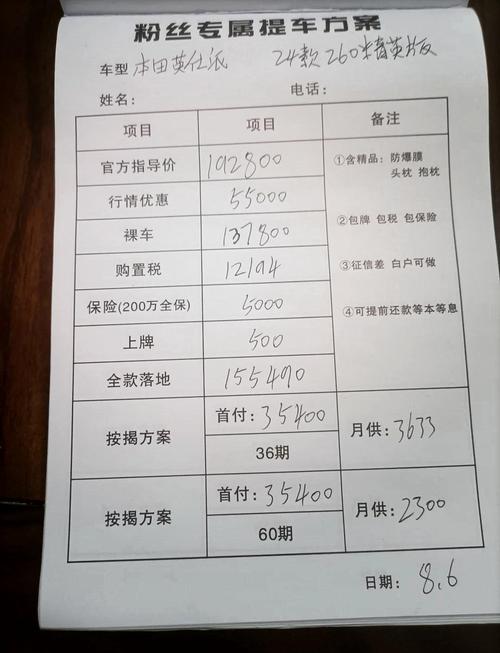 粉丝专属提车方案
车型 本田英仕派 24款 260 精英版
姓名： 电话：
项目 项目 备注
官方指导价 192800
行情优惠 55000
裸车 137800
购置税 12194
保险(200万全保) 5000
上牌 500
全款落地 155490
①含精品：防爆膜
头枕 抱枕
②包牌 包税 包保险
③征信差 白户可做
④可提前还款等本等息
按揭方案 首付：35400 月供：3633
36期
按揭方案 首付：35400 月供：2300
60期
日期： 8.6